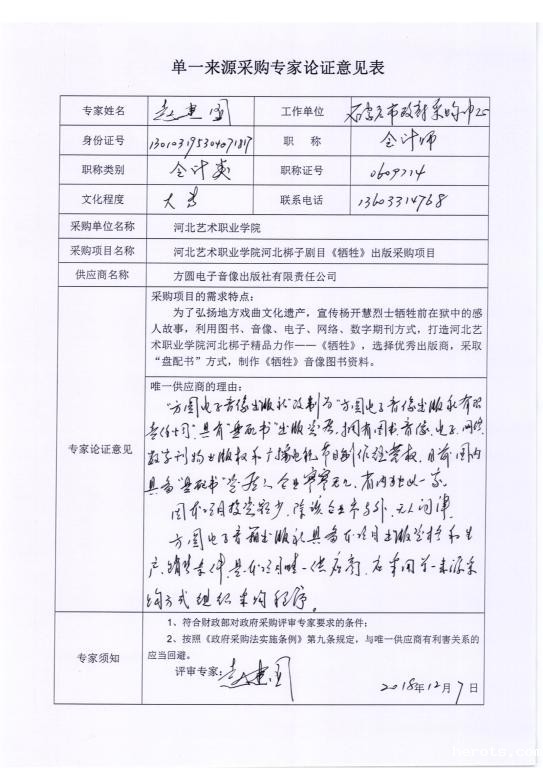 单一来源采购专家论证意见表
专家姓名 赵惠国 工作单位 石家庄市政府采购中心
身份证号 职 称 会计师
职称类别 会计类 职称证号 0609714
文化程度 大专 联系电话 13603314768
采购单位名称 河北艺术职业学院
采购项目名称 河北艺术职业学院河北梆子剧目《牺牲》出版采购项目
供应商名称 方圆电子音像出版社有限责任公司
专家论证意见
采购项目的需求特点:
为了弘扬地方戏曲文化遗产,宣传杨开慧烈士牺牲前在狱中的感
人故事,利用图书、音像、电子、网络、数字期刊方式,打造河北艺
术职业学院河北梆子精品力作——《牺牲》,选择优秀出版商,采取
“盘配书”方式,制作《牺牲》音像图书资料。
唯一供应商的理由:
“方圆电子音像出版社”改制为“方圆电子音像出版社有限
责任公司”具有“盘配书”出版资质,拥有图书音像、电子、网络
数字刊物出版权和广播电视节目制作经营权,目前国内
具备“盘配书”资质企业寥寥无几,省内独此一家。
因本项目投资较少,除该企业参与外,无人问津。
方圆电子音像出版社具备本项目出版资格和生
产、销售条件,是本项目唯一供应商,应采用单一来源采
购方式组织采购程序。
专家须知
1、符合财政部对政府采购评审专家要求的条件;
2、按照《政府采购法实施条例》第九条规定,与唯一供应商有利害关系的
应当回避。
评审专家: 赵惠国
2018年12月7日